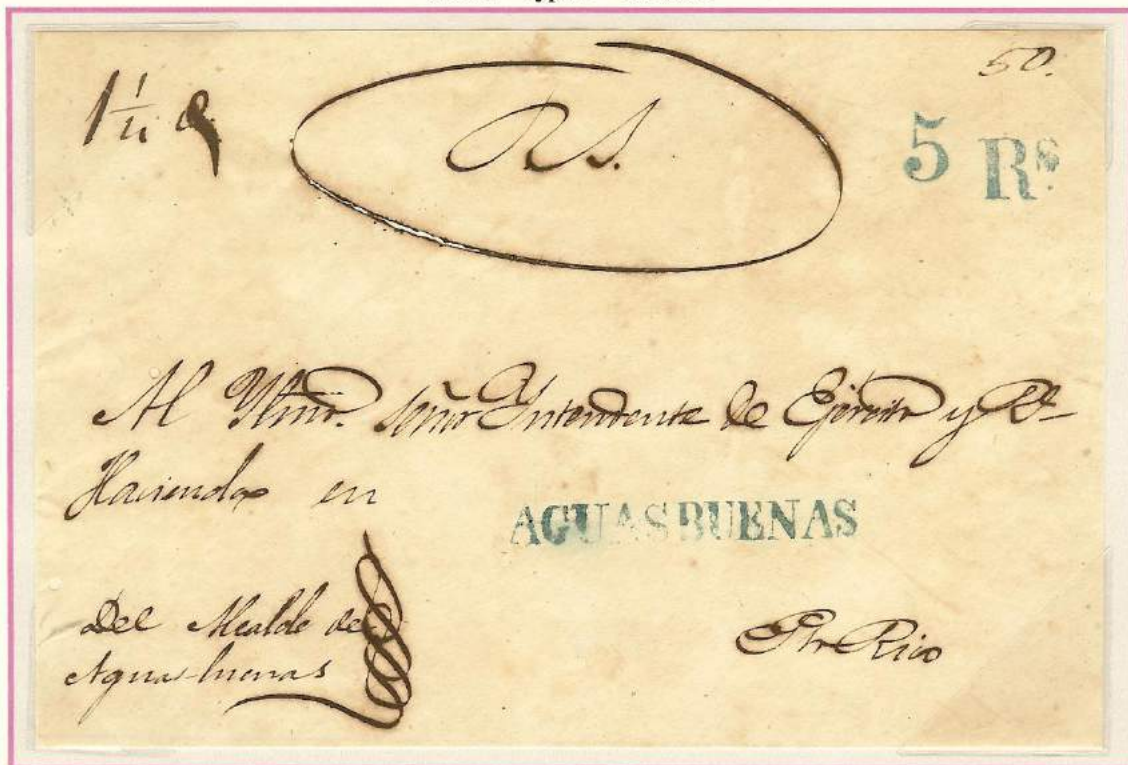 50.
1½
RS.
5 Rs
Al Yltmo. señor Yntendente de Ejército y Rl
Hacienda en
AGUAS BUENAS
Del Alcalde de
Aguas-buenas
Pto Rico